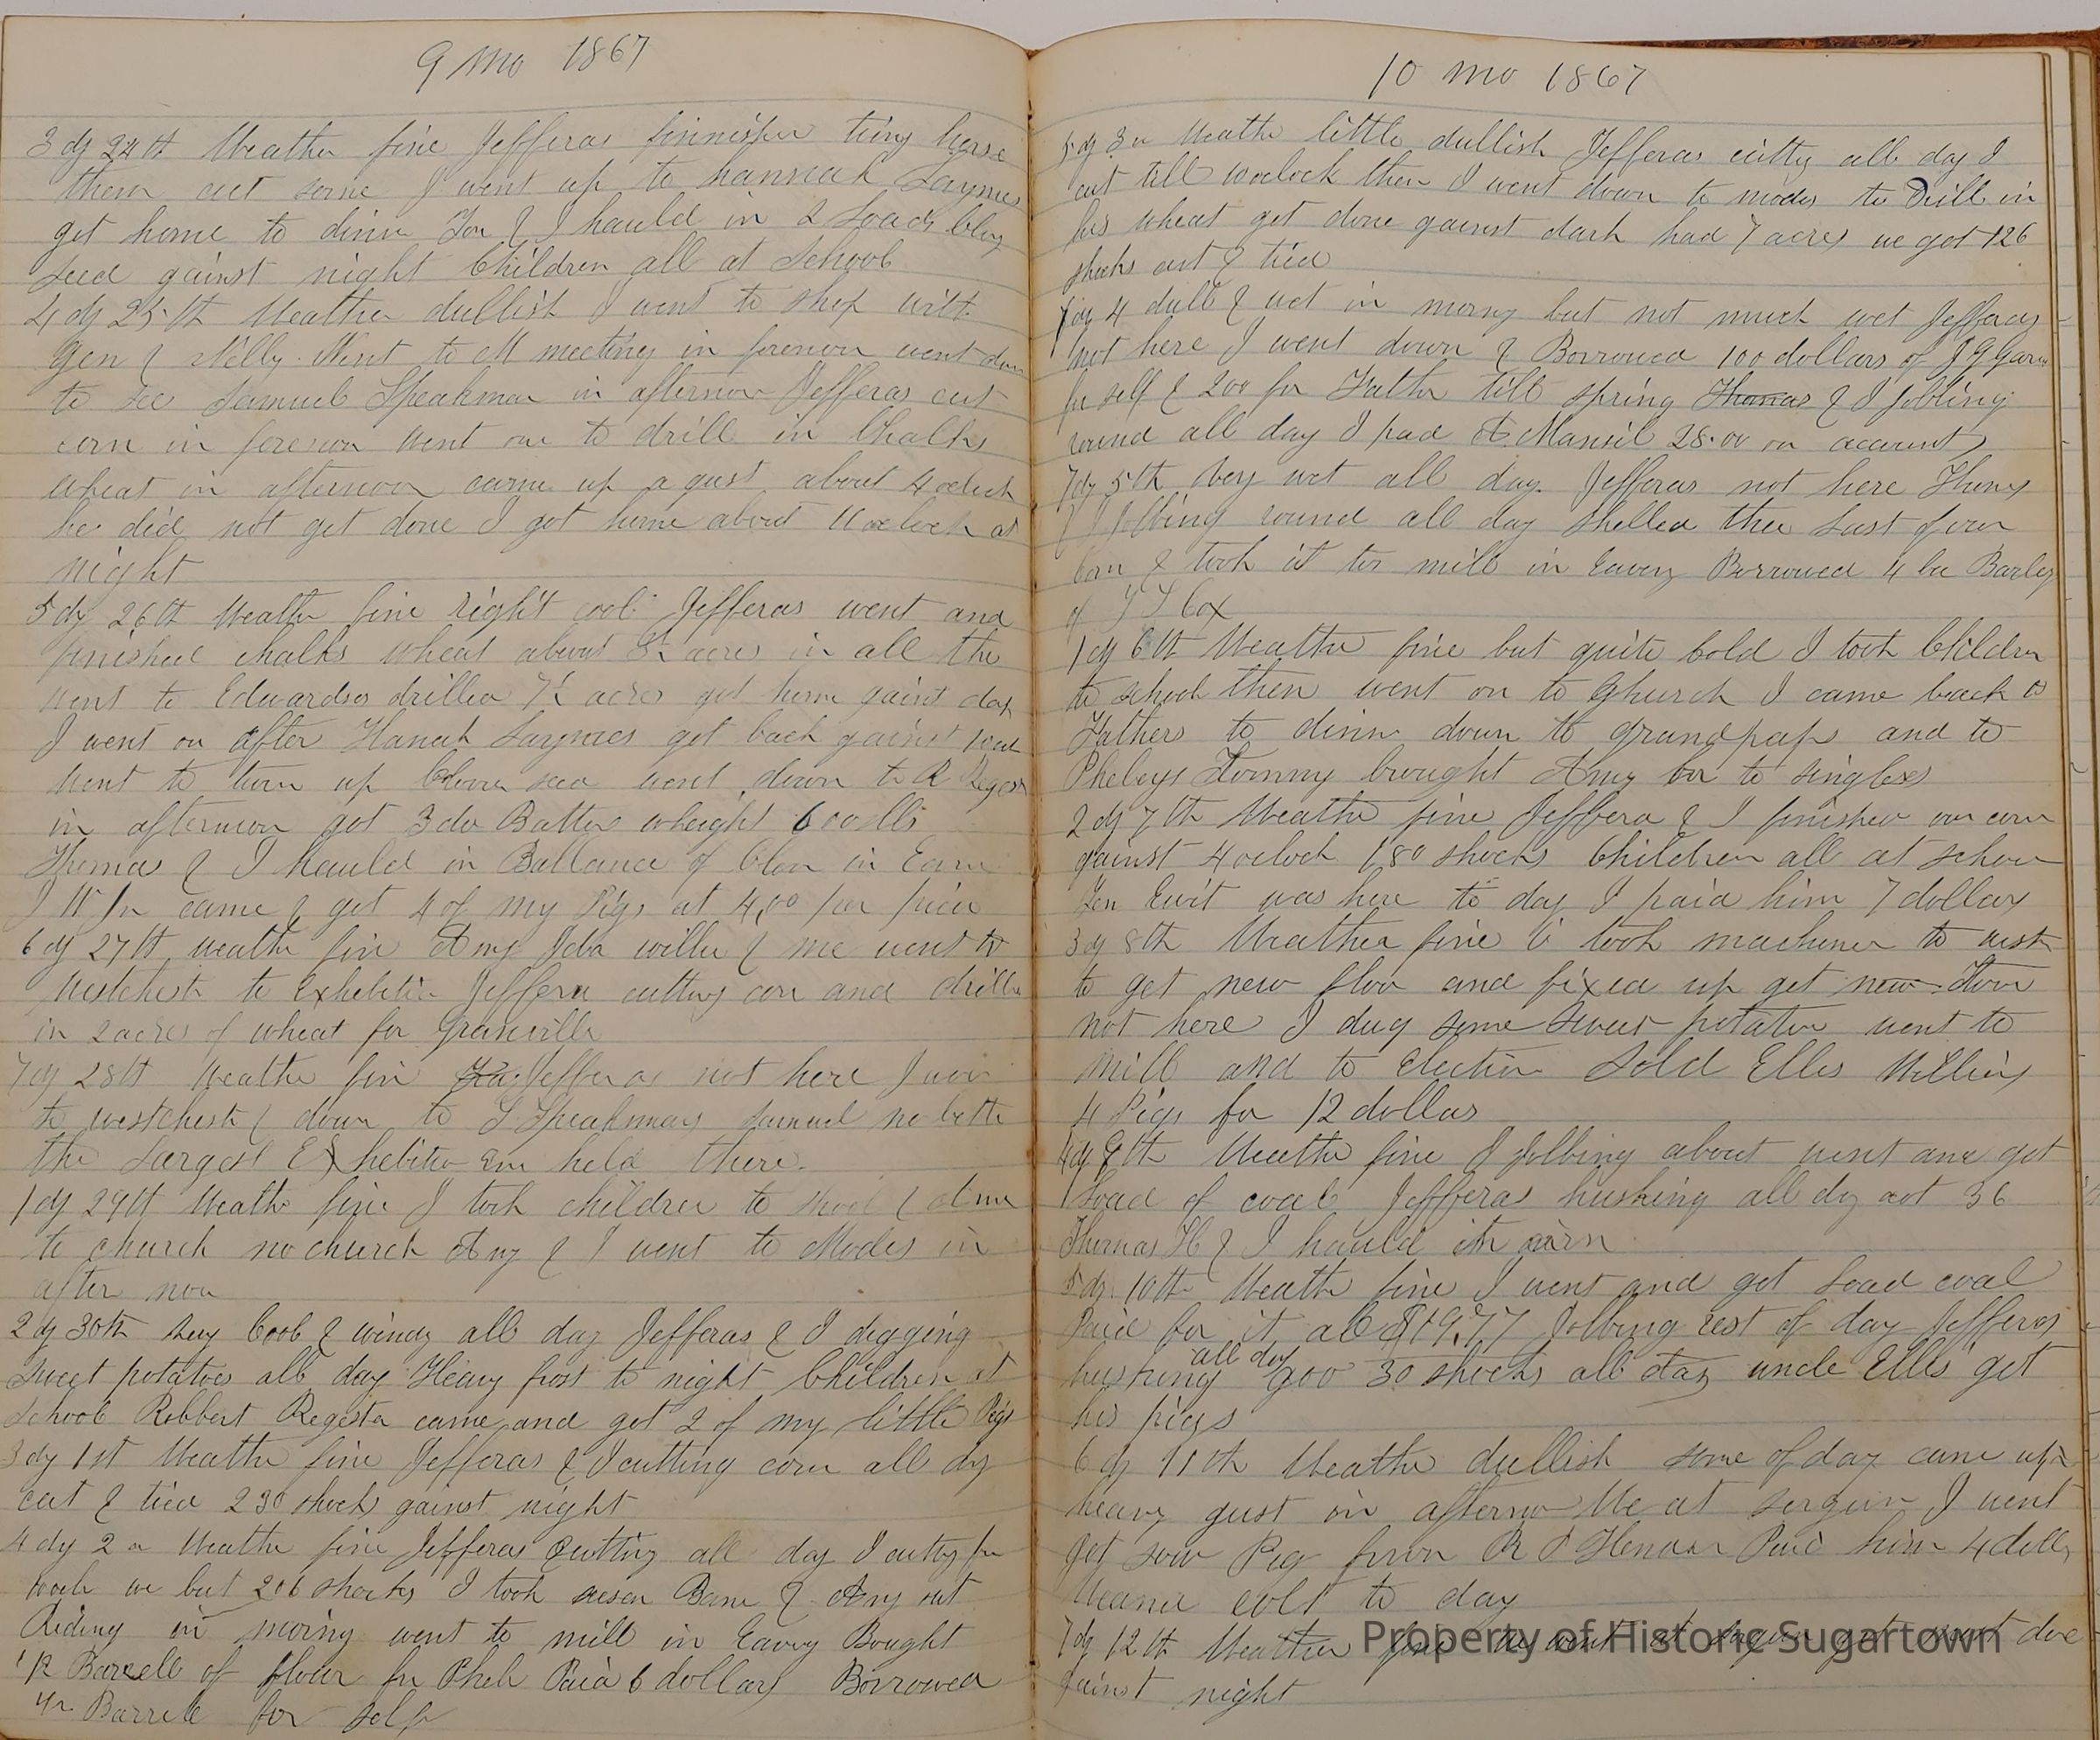 9 mo 1867
3 dy 24th Weather fine Jefferas tiing herse
then cut some I went up to hannah Laymes
get home to dinn Tom & I hauld in 2 Loads Clov
seed gainst night Children all at School
4 dy 25th Weather dullish I went to shop with
Gen & Nelly Went to M meeting in forenon went down
to see Samuel Speakman in afternon Jefferas cut
corn in forenon went on to drill in Chalks
wheat in afternoon came up a gust about 4 oclock
he did not get done I got home about 11 oclock at
night
5 dy 26th Weather fine right cool Jefferas went and
finished chalks wheat about acres in all the
went to Edwardses drilled 7½ acres got home gainst dark
I went on after Hanah Laymes got back gainst
went to turn up Clover seed went down to R Regesr
in afternoon got 3 do Batter wheight 600 lls
Thomas & I hauld in Ballance of Clov in Eavn
came & got 4 of my Pigs at 4,00 per piece
6 dy 27th weathe fin Amy Ida willie & me went to
Westchest to Exhebitin Jeffera cutting con and drille
in 2 acres of wheat for Granville
7 dy 28th Weathe fin Jefferas not here I wen
to westchest & down to S Speakmans Samuel no bette
the Largest Exhebiton Eve held there.
1 dy 29th Weathe fine I took children to school &
to church no church Amy & I went to Modes in
after non
2 dy 30th very Cool & windy all day Jefferas & I digging
sweet potatoes all day Heavy frost to night Children at
School Robbert Regesta came and got 2 of my little Pigs
3 dy 1st Weathe fine Jefferas & I cutting corn all dy
cut & tied 230 shocks gainst night
4 dy 2 Weathe fine Jefferas Cutting all day I cutty
we cut 206 shocks I took Bane & Amy out
Riding in moring went to mill in Eavng Bought
1/2 Barrell of flour for Pheb Paid 6 dollars Borrowed
Barrele for self
10 mo 1867
5 dy 3 Weathe little dullish Jefferas cutty all day I
cut till 10 oclock then I went down to modes to Drill in
his wheat got done gainst dark had 7 acres we got 126
shocks cut & tied
dy 4 dull & wet in morng but not much wet Jefferas
not here I went down & Borrowed 100 dollars of J G Garr
for self & 200 for Father till spring Thomas & I Jobbing
round all day I paid A Mansil 28.00 on account
7 dy 5th Very wet all day Jefferas not here Thoms
& I Jobbing round all day shelled thee Last of our
Corn & took it to mill in Eaveng Borrowed 4 bu Barley
of Cox
1 dy 6th Weathe fine but quite Cold I took Children
to school then went on to Church I came back to
Fathers to dinn down to grandpaps and to
Phebeys Tommy brought Amy to singles
2 dy 7th Weathe fine Jeffera & I finished our corn
gainst 4 oclock 180 shocks Children all at school
was here to day I paid him 7 dollars
3 dy 8th Weather fine I took machiner to west
to get new floor and fixed up get new Tom
not here I dug some sweet potatoe went to
Mill and to election Sold Ellis Williams
4 Pigs for 12 dollas
4 dy 9th Weathe fine I Jobbing about went and got
1 Load of coal Jefferas husking all dy got 36
Thomas H & I hauld in corn
5 dy 10th Weathe fine I went and got Load coal
Paid for it all $19,77 Jobbing rest of day Jefferas
husking all day 30 shocks all day uncle Ellis get
his pigs
6 dy 11th Weathe dullish some of day came up a
heavy gust in afternon We at I went
got sow Pig from R Paid him 4 dolls
Weaned colt to day
7 dy 12th Weather fine done
gainst night
Property of Historic Sugartown